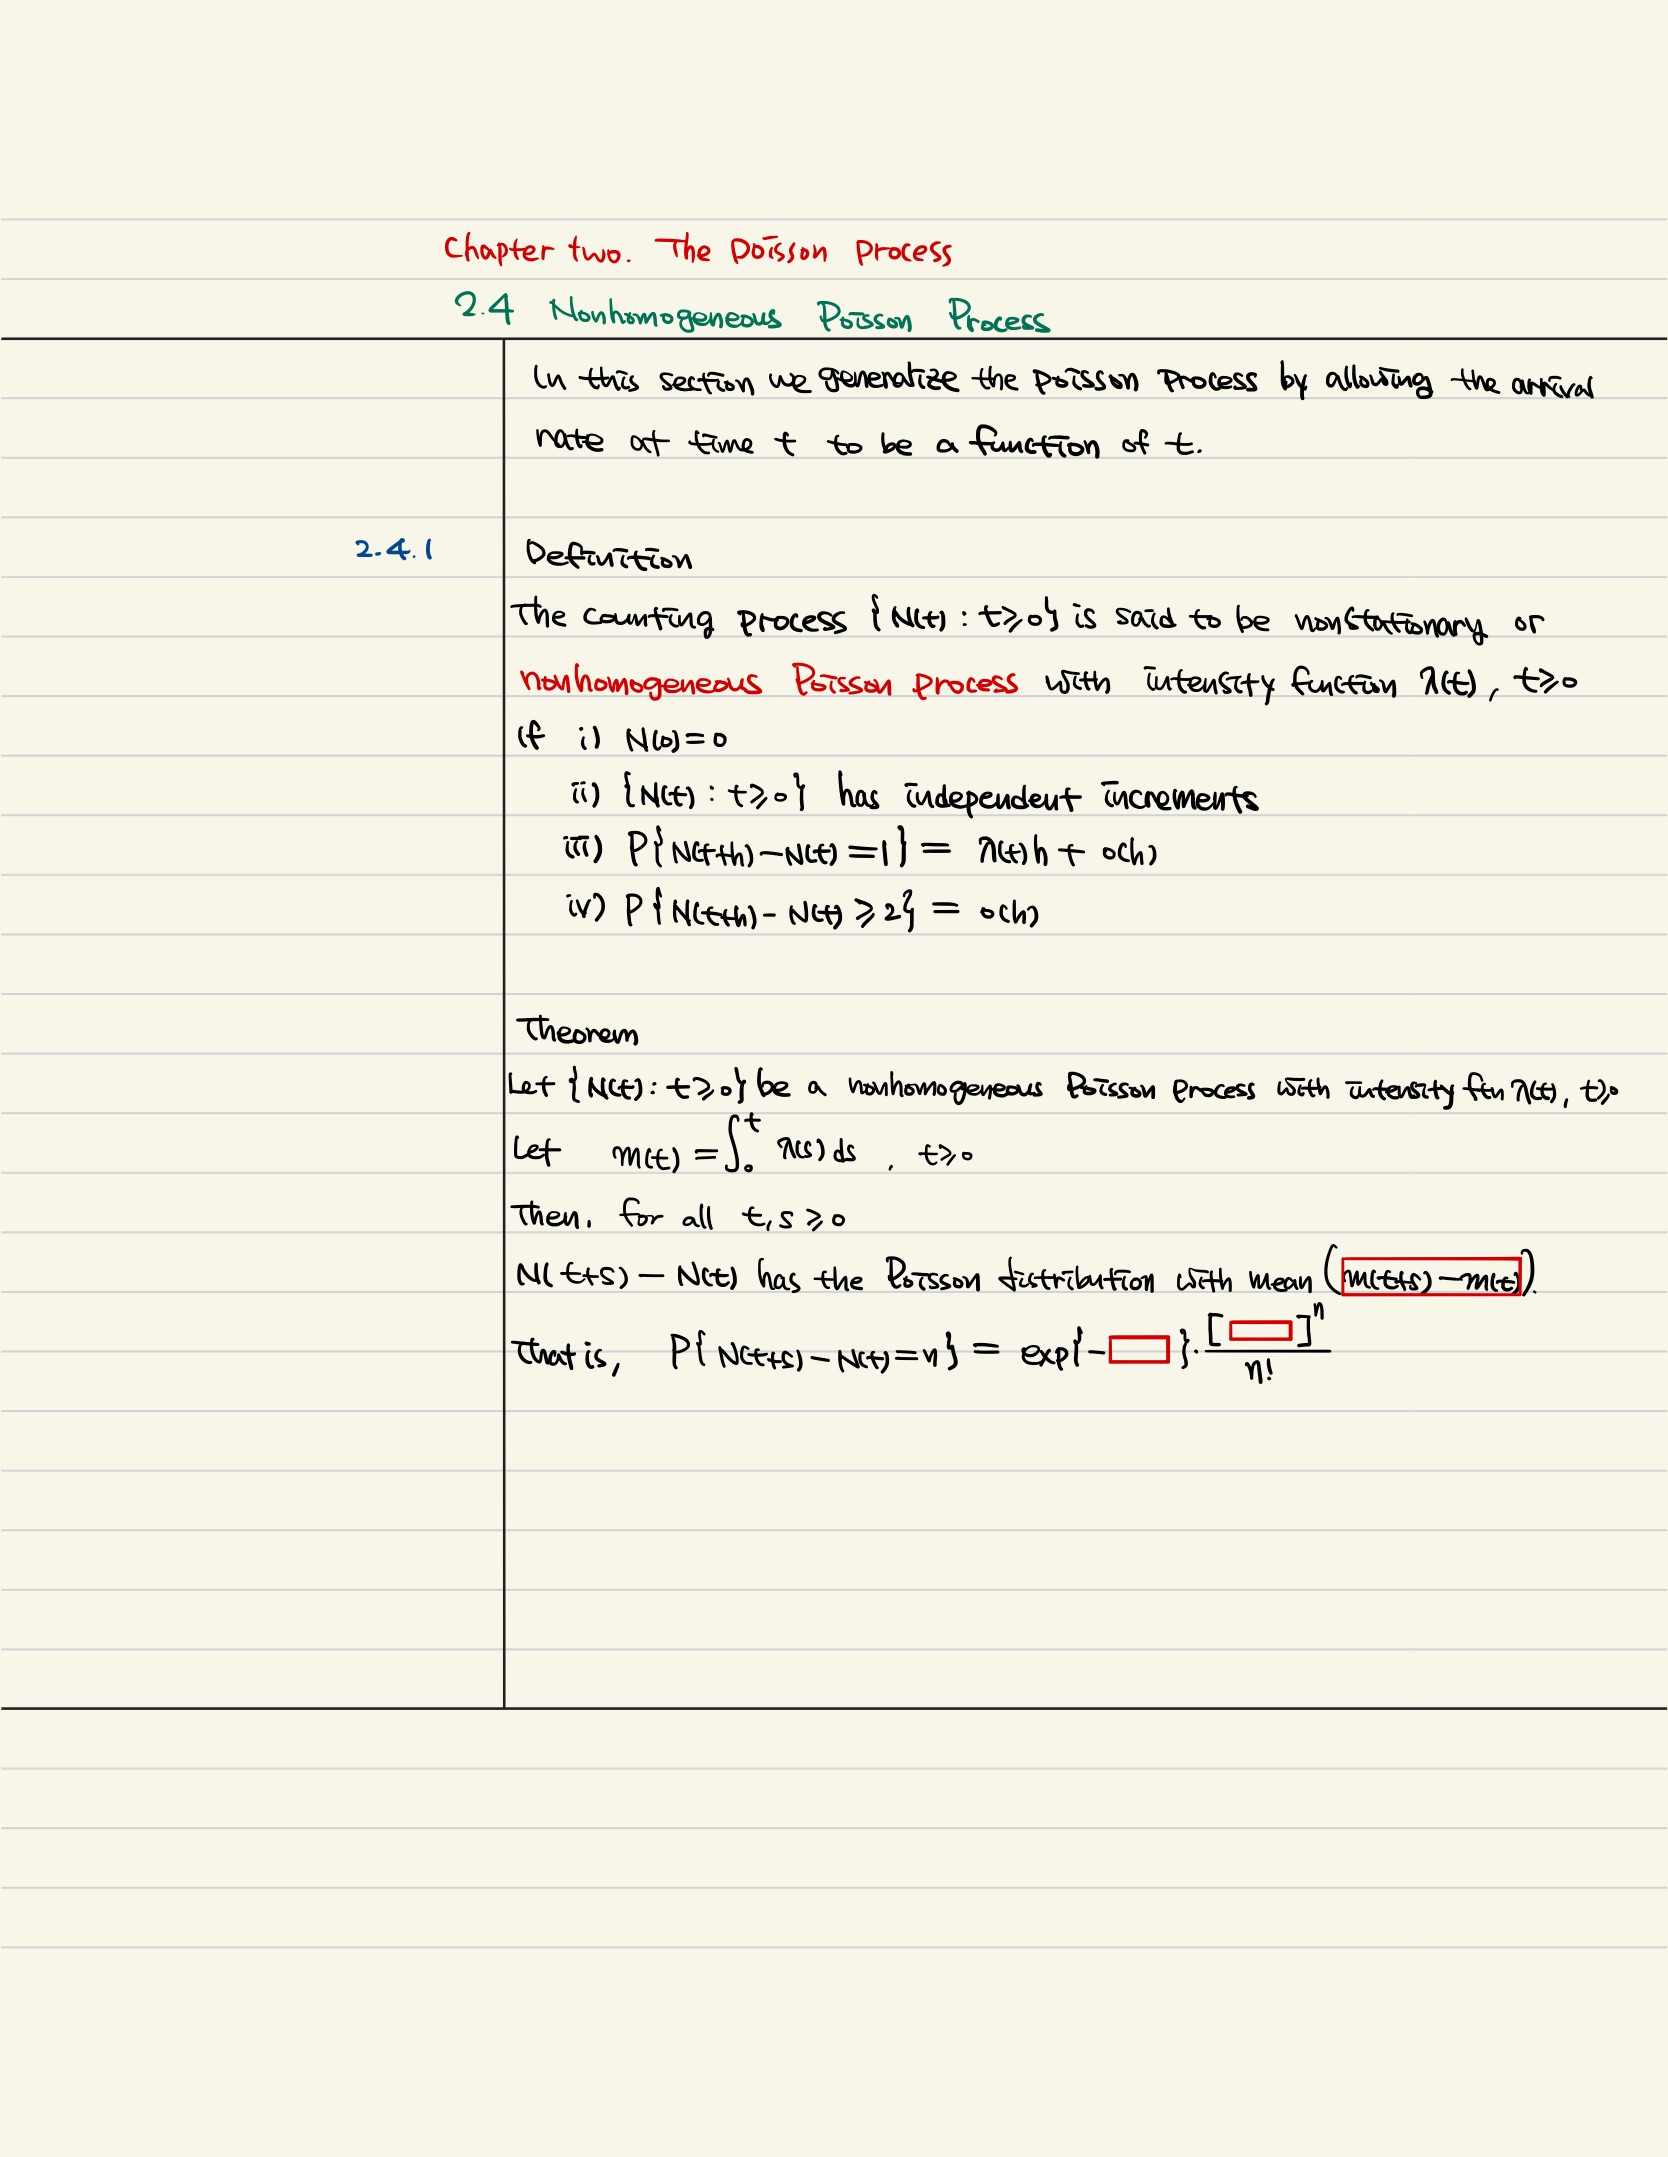 Chapter two. The Poisson Process
2.4 Nonhomogeneous Poisson Process
In this section we generalize the poisson process by allowing the arrival
rate at time t to be a function of t.
2.4.1 Definition
The counting process {N(t) : t≥0} is said to be nonstationary or
nonhomogeneous Poisson process with intensity function λ(t), t≥0
if i) N(0)=0
ii) {N(t) : t≥0} has independent increments
iii) P{N(t+h)-N(t)=1} = λ(t)h + o(h)
iv) P{N(t+h)-N(t)≥2} = o(h)
Theorem
Let {N(t) : t≥0} be a nonhomogeneous Poisson process with intensity ftn λ(t), t≥0
Let m(t) = ∫₀ᵗ λ(s) ds , t≥0
Then, for all t,s≥0
N(t+s) - N(t) has the Poisson distribution with mean (m(t+s)-m(t)).
That is, P{N(t+s)-N(t)=n} = exp{-□}·[□]ⁿ/n!